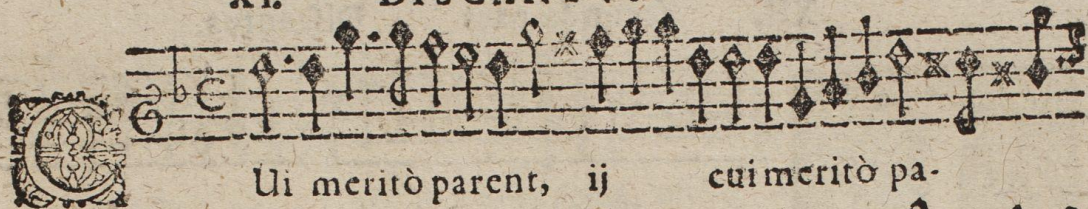 XI. DISCANTUS
CUi meritò parent, ij cui meritò pa-